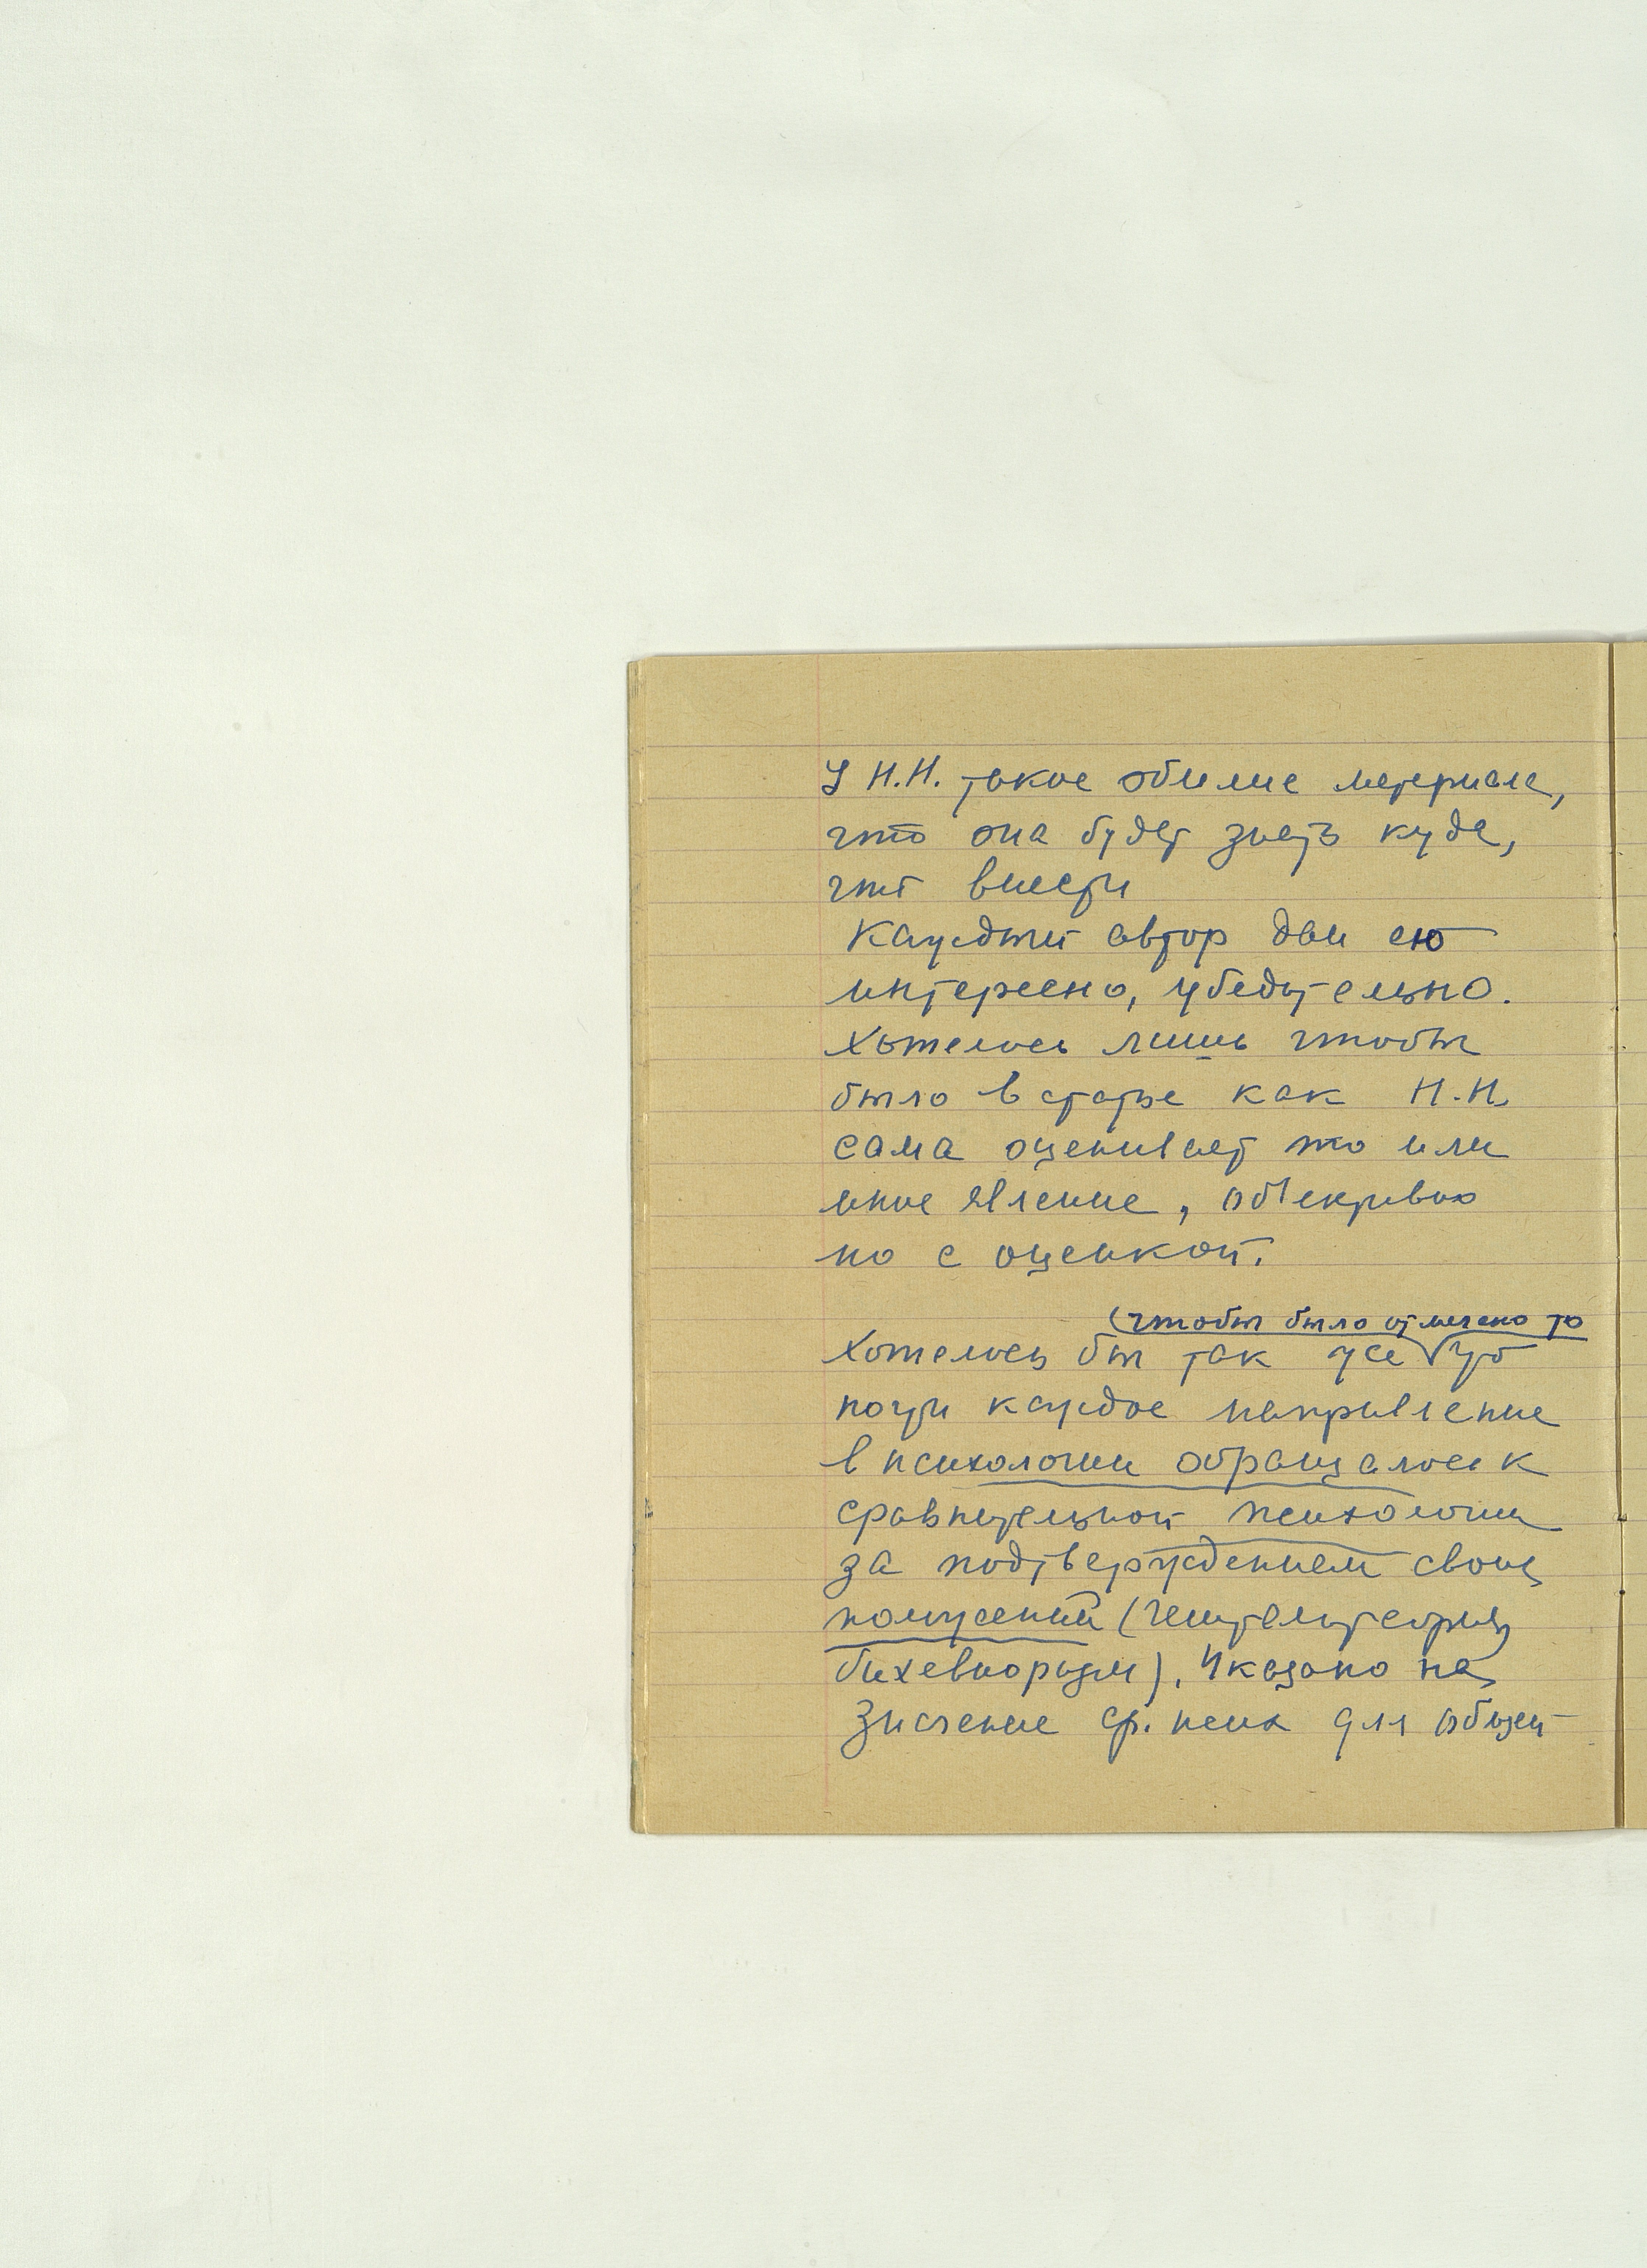 У Н.Н. такое обилие материала,
что она будет знать куда,
что внести
Каждый автор дан ею
интересно, убедительно.
Хотелось лишь чтобы
было в статье как Н.Н.
сама оценивает то или
иное явление, объективно
но с оценкой.
(чтобы было отмечено то
Хотелось бы так же что
почти каждое направление
в психологии обращалось к
сравнительной психологии
за подтверждением своих
положений (гештальттеория,
бихевиоризм). Указано на
значение ср. псих для общей